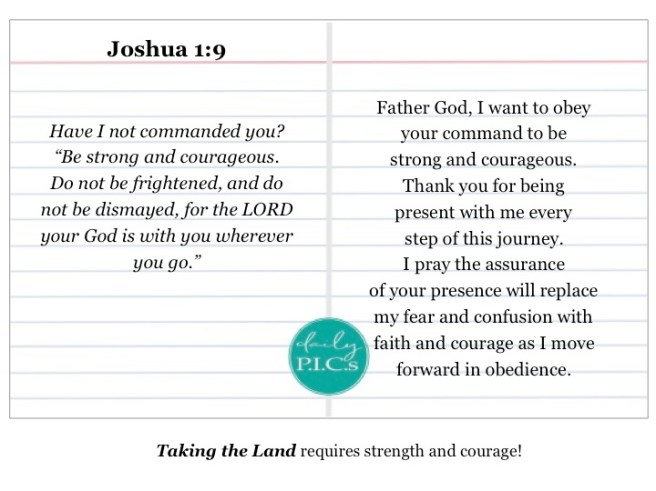 Joshua 1:9
Have I not commanded you?
“Be strong and courageous.
Do not be frightened, and do
not be dismayed, for the LORD
your God is with you wherever
you go.”
Father God, I want to obey
your command to be
strong and courageous.
Thank you for being
present with me every
step of this journey.
I pray the assurance
of your presence will replace
my fear and confusion with
faith and courage as I move
forward in obedience.
daily
P.I.C.s
Taking the Land requires strength and courage!